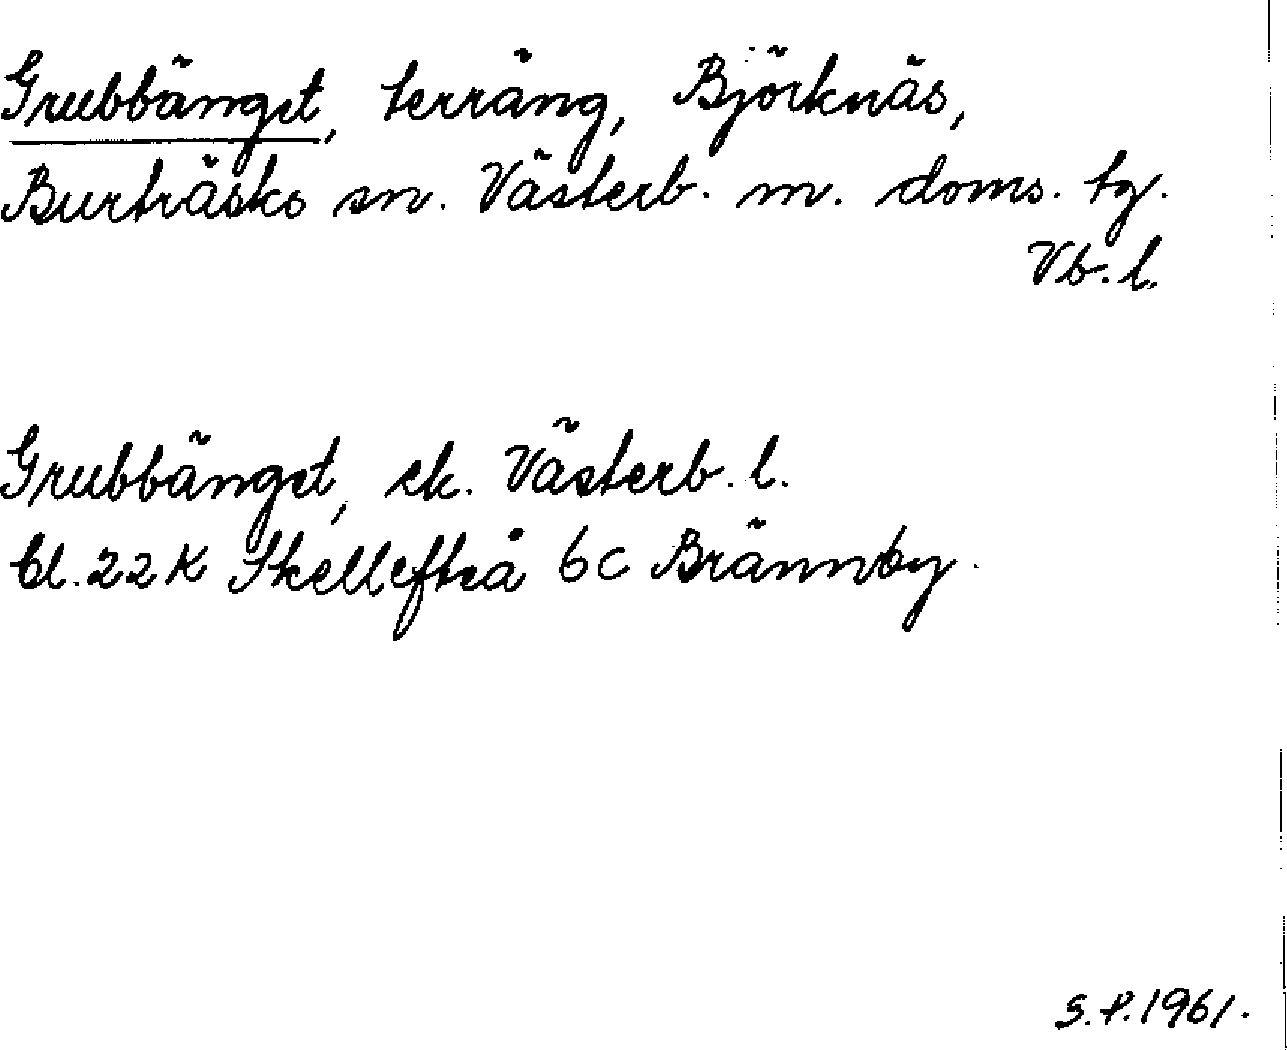 Grubbänget, terräng, Björknäs,
Burträsks sn. Västerb. m. doms. tg.
Vb. l.
Grubbänget, ek. Västerb. l.
bl. 22 K Skellefteå 6c Brännby.
S.P. 1961.